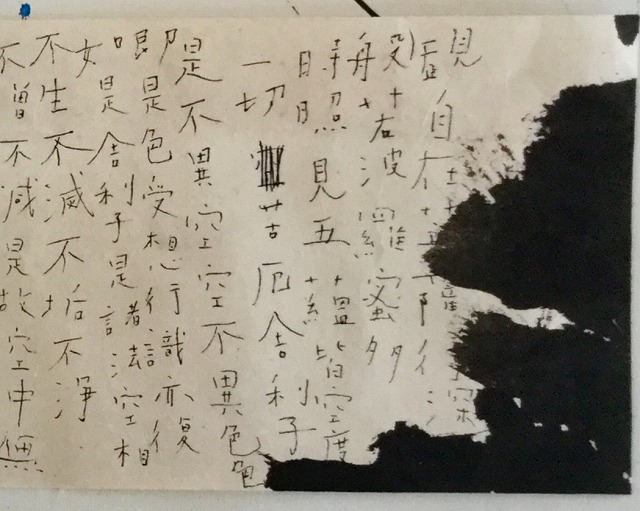 觀自在菩薩行深
般若波羅蜜多
時照見五蘊皆空度
一切苦厄舍利子
是不異空空不異色色
即是色受想行識亦復
如是舍利子是諸法空相
不生不滅不垢不淨
不增不減是故空中無